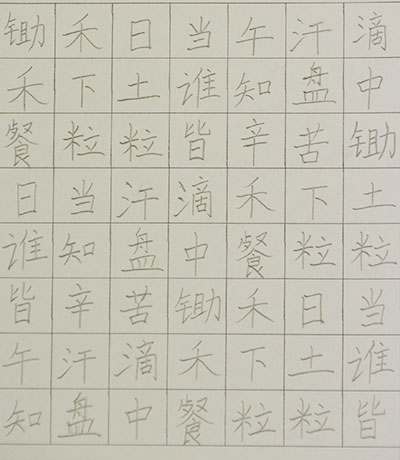 锄禾日当午汗滴
禾下土谁知盘中
餐粒粒皆辛苦锄
日当汗滴禾下土
谁知盘中餐粒粒
皆辛苦锄禾日当
午汗滴禾下土谁
知盘中餐粒粒皆